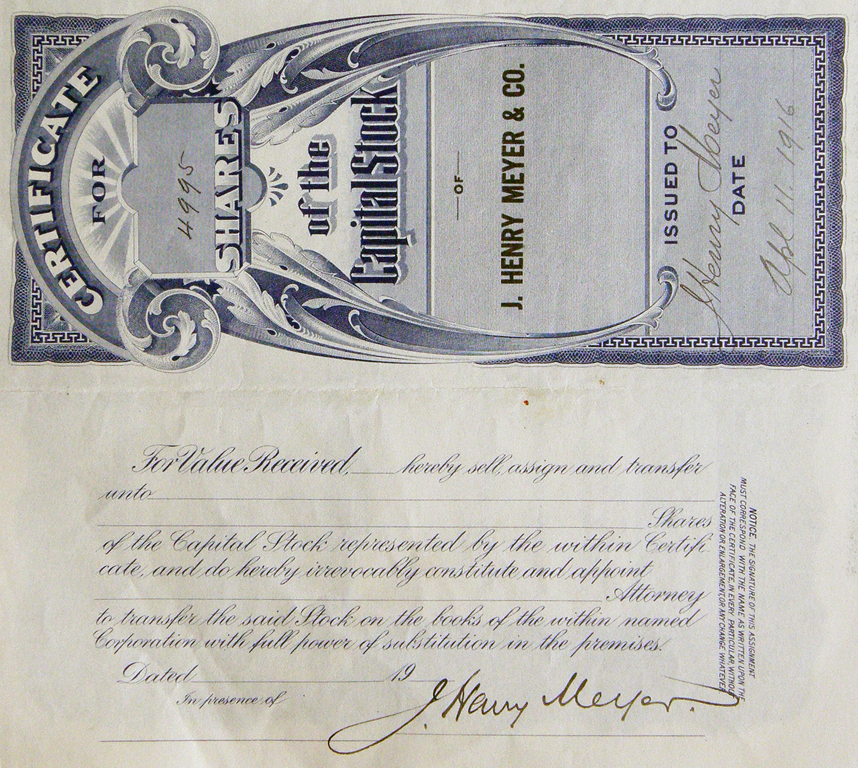 CERTIFICATE
FOR
4995
SHARES
of the
Capital Stock
OF
J. HENRY MEYER & CO.
ISSUED TO
J Henry Meyer
DATE
Apl 11. 1916
For Value Received, hereby sell, assign and transfer
unto
Shares
of the Capital Stock represented by the within Certifi
cate, and do hereby irrevocably constitute and appoint
Attorney
to transfer the said Stock on the books of the within named
Corporation with full power of substitution in the premises.
Dated 19
In presence of
J. Henry Meyer.
NOTICE. THE SIGNATURE OF THIS ASSIGNMENT
MUST CORRESPOND WITH THE NAME AS WRITTEN UPON THE
FACE OF THE CERTIFICATE, IN EVERY PARTICULAR, WITHOUT
ALTERATION OR ENLARGEMENT, OR ANY CHANGE WHATEVER